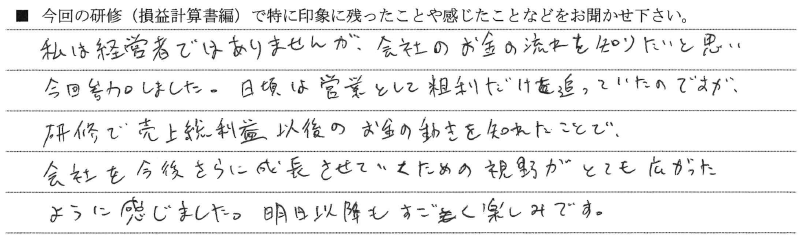 ■ 今回の研修（損益計算書編）で特に印象に残ったことや感じたことなどをお聞かせ下さい。
私は経営者ではありませんが、会社のお金の流れを知りたいと思い
今回参加しました。日頃は営業として粗利だけを追っていたのですが、
研修で売上総利益以後のお金の動きを知れたことで、
会社を今後さらに成長させていくための視野がとても広がった
ように感じました。明日以降もすごく楽しみです。